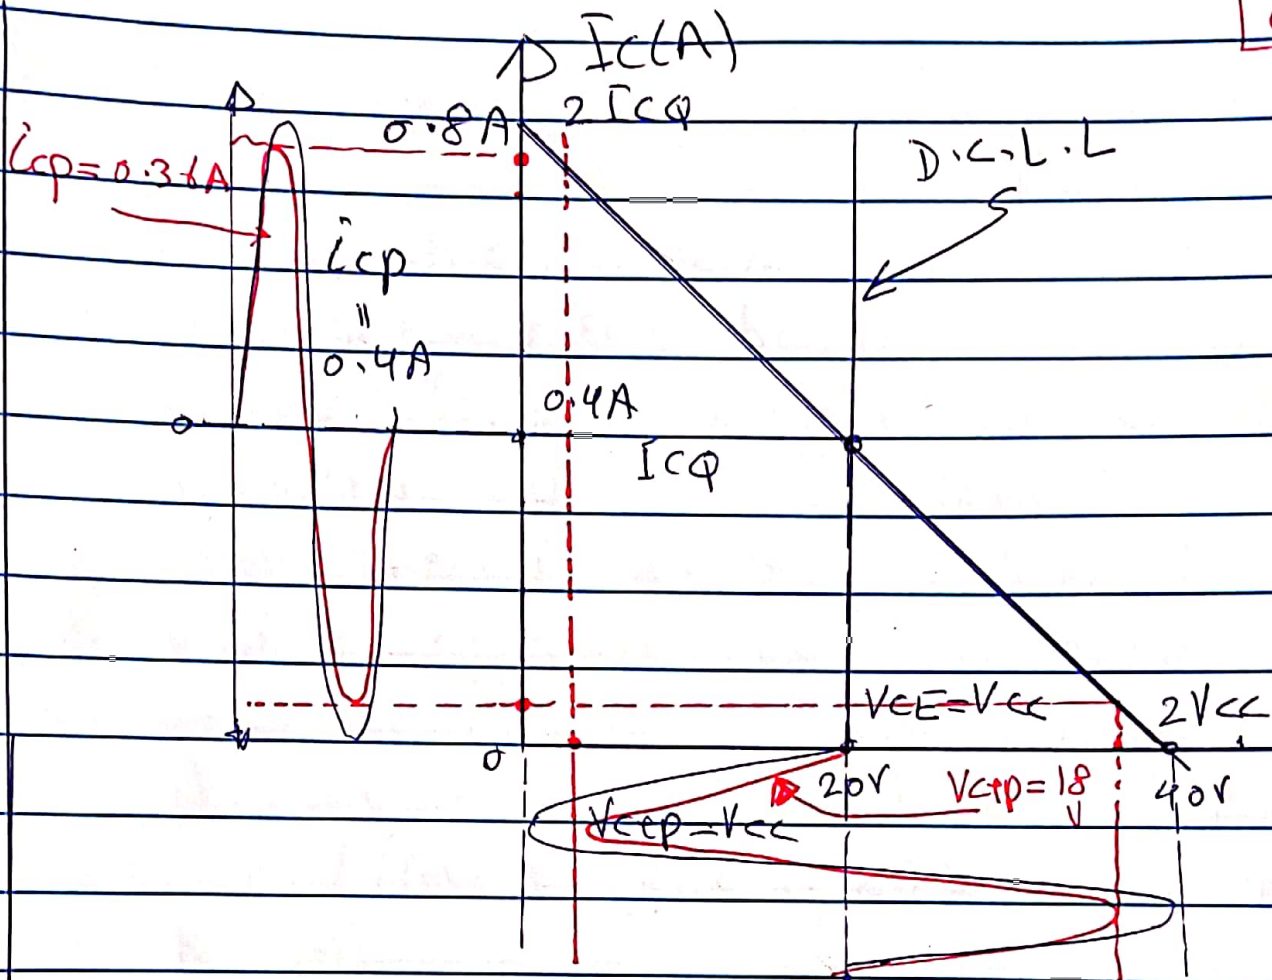 Ic(A)
0.8A
2 ICQ
D.C.L.L
icp=0.36A
icp
=
0.4A
0.4A
ICQ
VCE=VCC
2VCC
0
20V
Vcep=18
V
40V
Vcep=Vcc